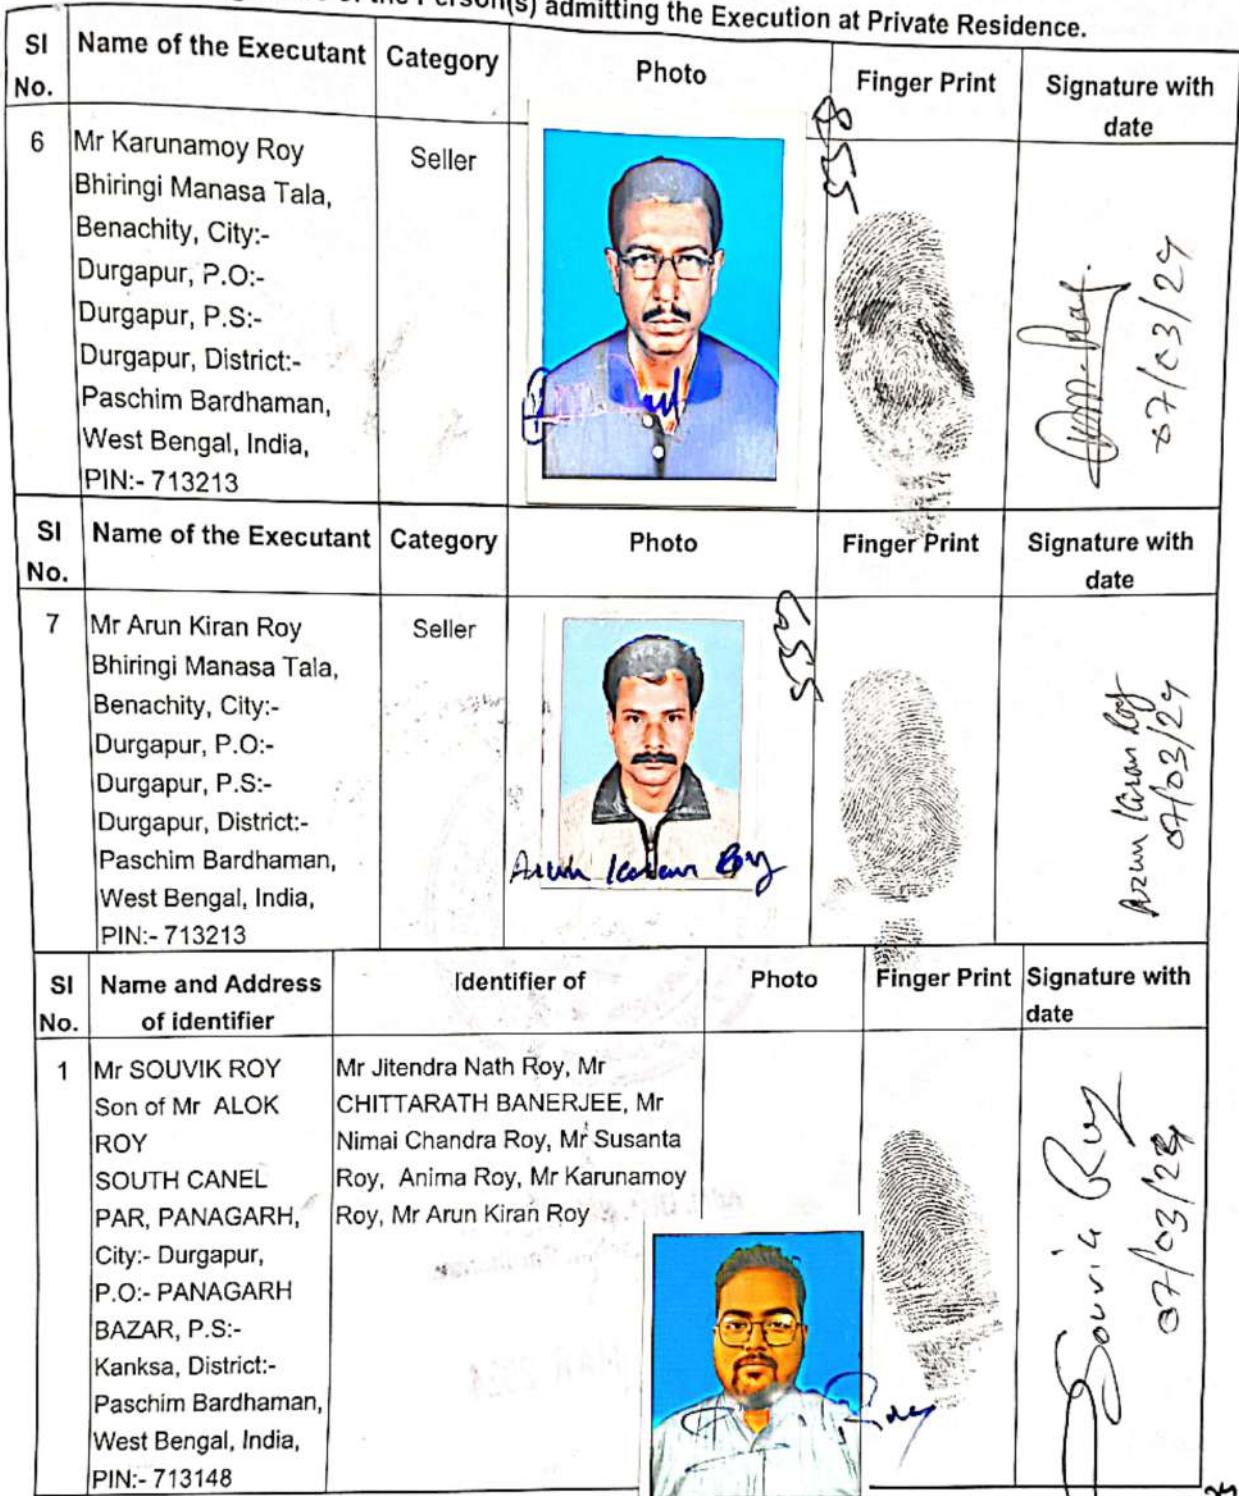 of the Person(s) admitting the Execution at Private Residence.
Sl No.
Name of the Executant
Category
Photo
Finger Print
Signature with date
6
Mr Karunamoy Roy
Bhiringi Manasa Tala,
Benachity, City:-
Durgapur, P.O:-
Durgapur, P.S:-
Durgapur, District:-
Paschim Bardhaman,
West Bengal, India,
PIN:- 713213
Seller
07/03/24
Sl No.
Name of the Executant
Category
Photo
Finger Print
Signature with date
7
Mr Arun Kiran Roy
Bhiringi Manasa Tala,
Benachity, City:-
Durgapur, P.O:-
Durgapur, P.S:-
Durgapur, District:-
Paschim Bardhaman,
West Bengal, India,
PIN:- 713213
Seller
Arun Kiran Roy
Arun Kiran Roy
07/03/24
Sl No.
Name and Address of identifier
Identifier of
Photo
Finger Print
Signature with date
1
Mr SOUVIK ROY
Son of Mr ALOK
ROY
SOUTH CANEL
PAR, PANAGARH,
City:- Durgapur,
P.O:- PANAGARH
BAZAR, P.S:-
Kanksa, District:-
Paschim Bardhaman,
West Bengal, India,
PIN:- 713148
Mr Jitendra Nath Roy, Mr
CHITTARATH BANERJEE, Mr
Nimai Chandra Roy, Mr Susanta
Roy, Anima Roy, Mr Karunamoy
Roy, Mr Arun Kiran Roy
Roy
Souvik Roy
07/03/24